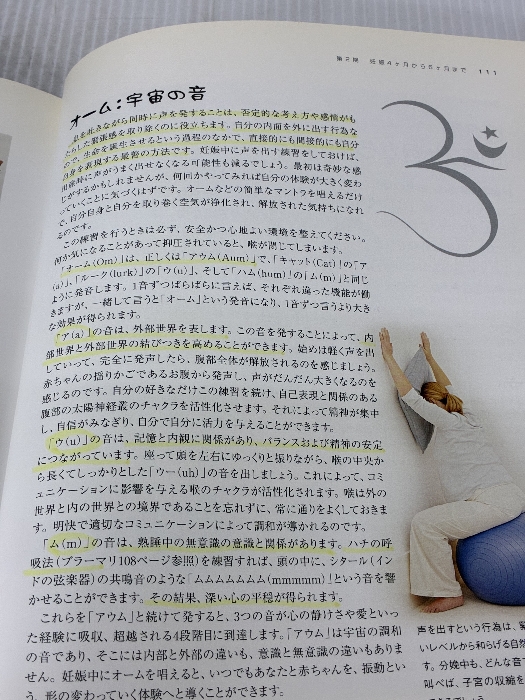 第2期 妊娠4ヶ月から6ヶ月まで 111
オーム：宇宙の音
息を吐きながら同時に声を発することは、否定的な考え方や感情がも
たらした緊張感を取り除くのに役立ちます。自分の内面を外に出す行為な
ので、生命を誕生させるという過程のなかで、直接的にも間接的にも自分
自身を表現する最善の方法です。妊娠中に声を出す練習をしておけば、
出産時に声がうまく出せなくなる可能性も減るでしょう。最初は奇妙な感
じがするかもしれませんが、何回かやってみれば自分の体験が大きく変わ
っていくことに気づくはずです。オームなどの簡単なマントラを唱えるだけ
で、自分自身と自分を取り巻く空気が浄化され、解放された気持ちになれ
るのです。
この練習を行うときは必ず、安全かつ心地よい環境を整えてください。
何か気になることがあって抑圧されていると、喉が閉じてしまいます。
「オーム(Om)」は、正しくは「アウム(Aum)」で、「キャット(Cat)」の「ア
(a)」、「ルーク(lurk)」の「ウ(u)」、そして「ハム(hum)」の「ム(m)」と同じ
ように発音します。1音ずつばらばらに言えば、それぞれ違った機能が働
きますが、一緒して言うと「オーム」という発音になり、1音ずつ言うより大き
な効果が得られます。
「ア(a)」の音は、外部世界を表します。この音を発することによって、内
部世界と外部世界の結びつきを高めることができます。始めは軽く声を出
していって、完全に発声したら、腹部全体が解放されるのを感じましょう。
赤ちゃんの揺りかごであるお腹から発声し、声がだんだん大きくなるのを
感じるのです。自分の好きなだけこの練習を続け、自己表現と関係のある
腹部の太陽神経叢のチャクラを活性化させます。それによって精神が集中
し、自信がみなぎり、自分で自分に活力を与えることができます。
「ウ(u)」の音は、記憶と内観に関係があり、バランスおよび精神の安定
につながっています。座って頭を左右にゆっくりと振りながら、喉の中央か
ら長くてしっかりとした「ウー(uh)」の音を出しましょう。これによって、コミ
ュニケーションに影響を与える喉のチャクラが活性化されます。喉は外の
世界と内の世界との境界であることを忘れずに、常に通りをよくしておきま
す。明快で適切なコミュニケーションによって調和が導かれるのです。
「ム(m)」の音は、熟睡中の無意識の意識と関係があります。ハチの呼
吸法(ブラーマリ108ページ参照)を練習すれば、頭の中に、シタール(イン
ドの弦楽器)の共鳴音のような「ムムムムムムム(mmmmm)」という音を響
かせることができます。その結果、深い心の平穏が得られます。
これらを「アウム」と続けて発すると、3つの音が心の静けさや愛といっ
た経験に吸収、超越される4段階目に到達します。「アウム」は宇宙の調和
の音であり、そこには内部と外部の違いも、意識と無意識の違いもありま
せん。妊娠中にオームを唱えると、いつでもあなたと赤ちゃんを、振動とい
う、形の変わっていく体験へと導くことができます。
声を出すという行為は、
いレベルから和らげる自然
す。分娩中も、どんな音で
叫べば、子宮の収縮を